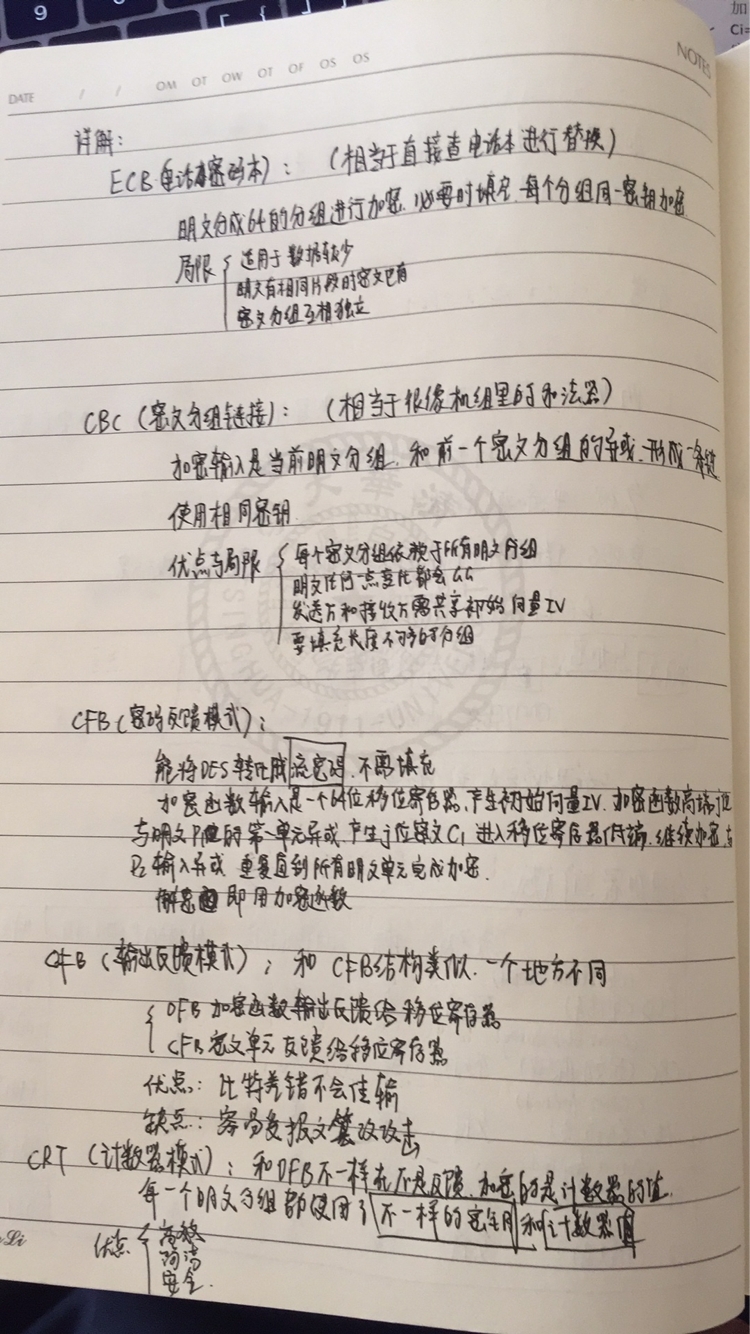 9
加
Ci=
NOTES
DATE / / OM OT OW OT OF OS OS
详解:
ECB(电话本密码本): (相当于直接查电话本进行替换)
明文分成64的分组进行加密.必要时填充.每个分组同一密钥加密
局限 适用于数据较少
明文有相同片段时密文也有
密文分组互相独立
CBC(密文分组链接): (相当于很像机组里的加法器)
加密输入是当前明文分组.和前一个密文分组的异或.形成一条链
使用相同密钥.
优点与局限 每个密文分组依赖于所有明文分组
明文任何一点变化都会GG
发送方和接收方需共享初始向量IV
要填充长度不够的分组
CFB(密码反馈模式):
能将DES转化成流密码.不需填充
加密函数输入是一个64位移位寄存器.产生初始向量IV.加密函数高端j位
与明文P的第一单元异或.产生j位密文C1进入移位寄存器低端.继续加密.与
P2输入异或 重复直到所有明文单元完成加密.
解密 即用加密函数
OFB(输出反馈模式): 和CFB结构类似.一个地方不同
OFB加密函数输出反馈给移位寄存器
CFB密文单元反馈给移位寄存器
优点: 比特差错不会传输
缺点: 容易受报文篡改攻击
CRT(计数器模式): 和OFB不一样在不是反馈.加密的是计数器的值.
每一个明文分组都使用了不一样的密钥和计数器值
优点 高效
简洁
安全.
Li
TSINGHUA UNIV
-1911-